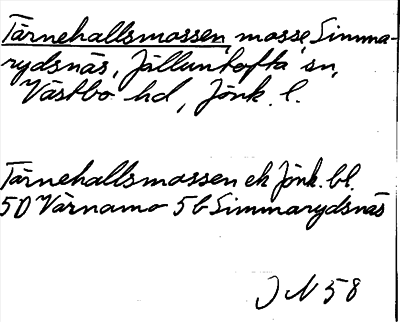 Tärnehallsmossen, mosse, Simma-
rydsnäs, Jälluntofta sn,
Västbo hd, Jönk. l.
Tärnehallsmossen ek Jönk. bl.
5D Värnamo 5b Simmarydsnäs
J N 58